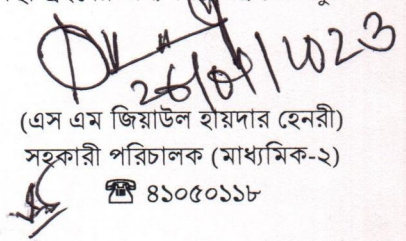 26/09/2023
(এস এম জিয়াউল হায়দার হেনরী)
সহকারী পরিচালক (মাধ্যমিক-২)
☎ ৪১০৫০১১৮